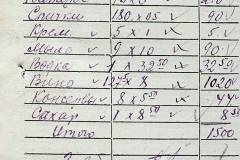 Спички 180 x 05 v 90 v
Крем. v 5 x 1 v 5 v
Мыло v 9 x 10 v 90 v
Водка v 1 x 32 50 v 32 50 v
Вино v 127 5 x 8 1020 v
Консервы v 8 x 5 50 v 44 v
Сахар v 1 x 8 50 v 8 50
Итого 1500